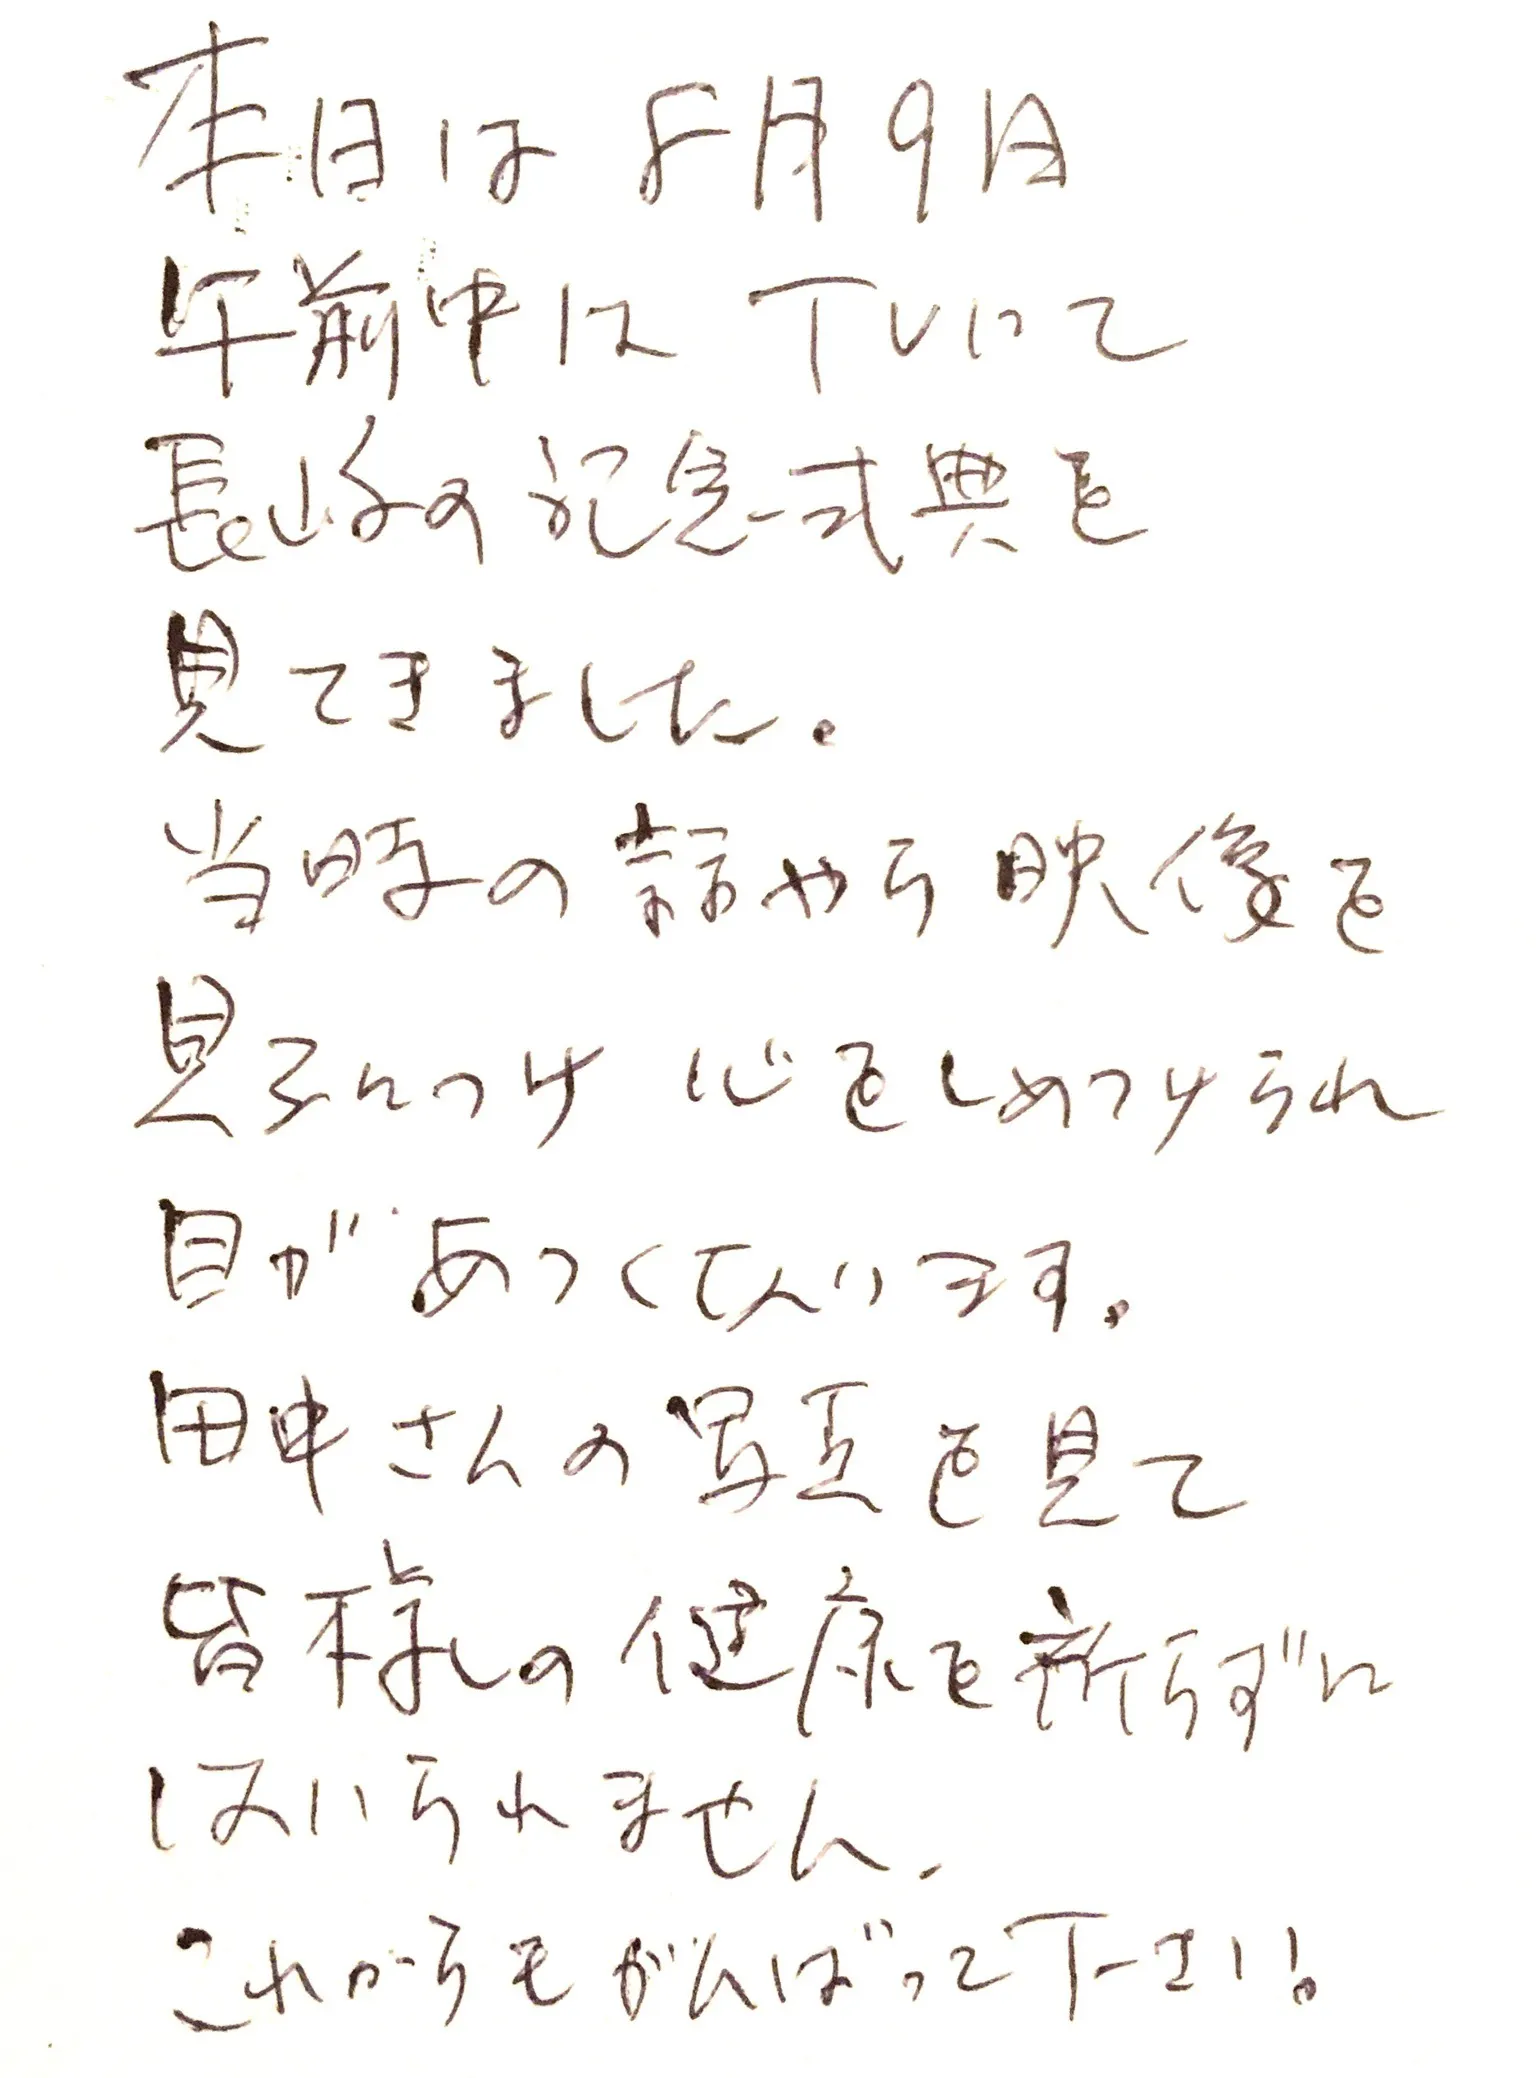 本日は8月9日
午前中はTVにて
長崎の記念式典を
見てきました。
当時の話やら映像を
見るにつけ心をしめつけられ
目があつくてんいます。
田中さんの写真を見て
皆様の健康を祈らずに
はいられません。
これからもがんばって下さい!